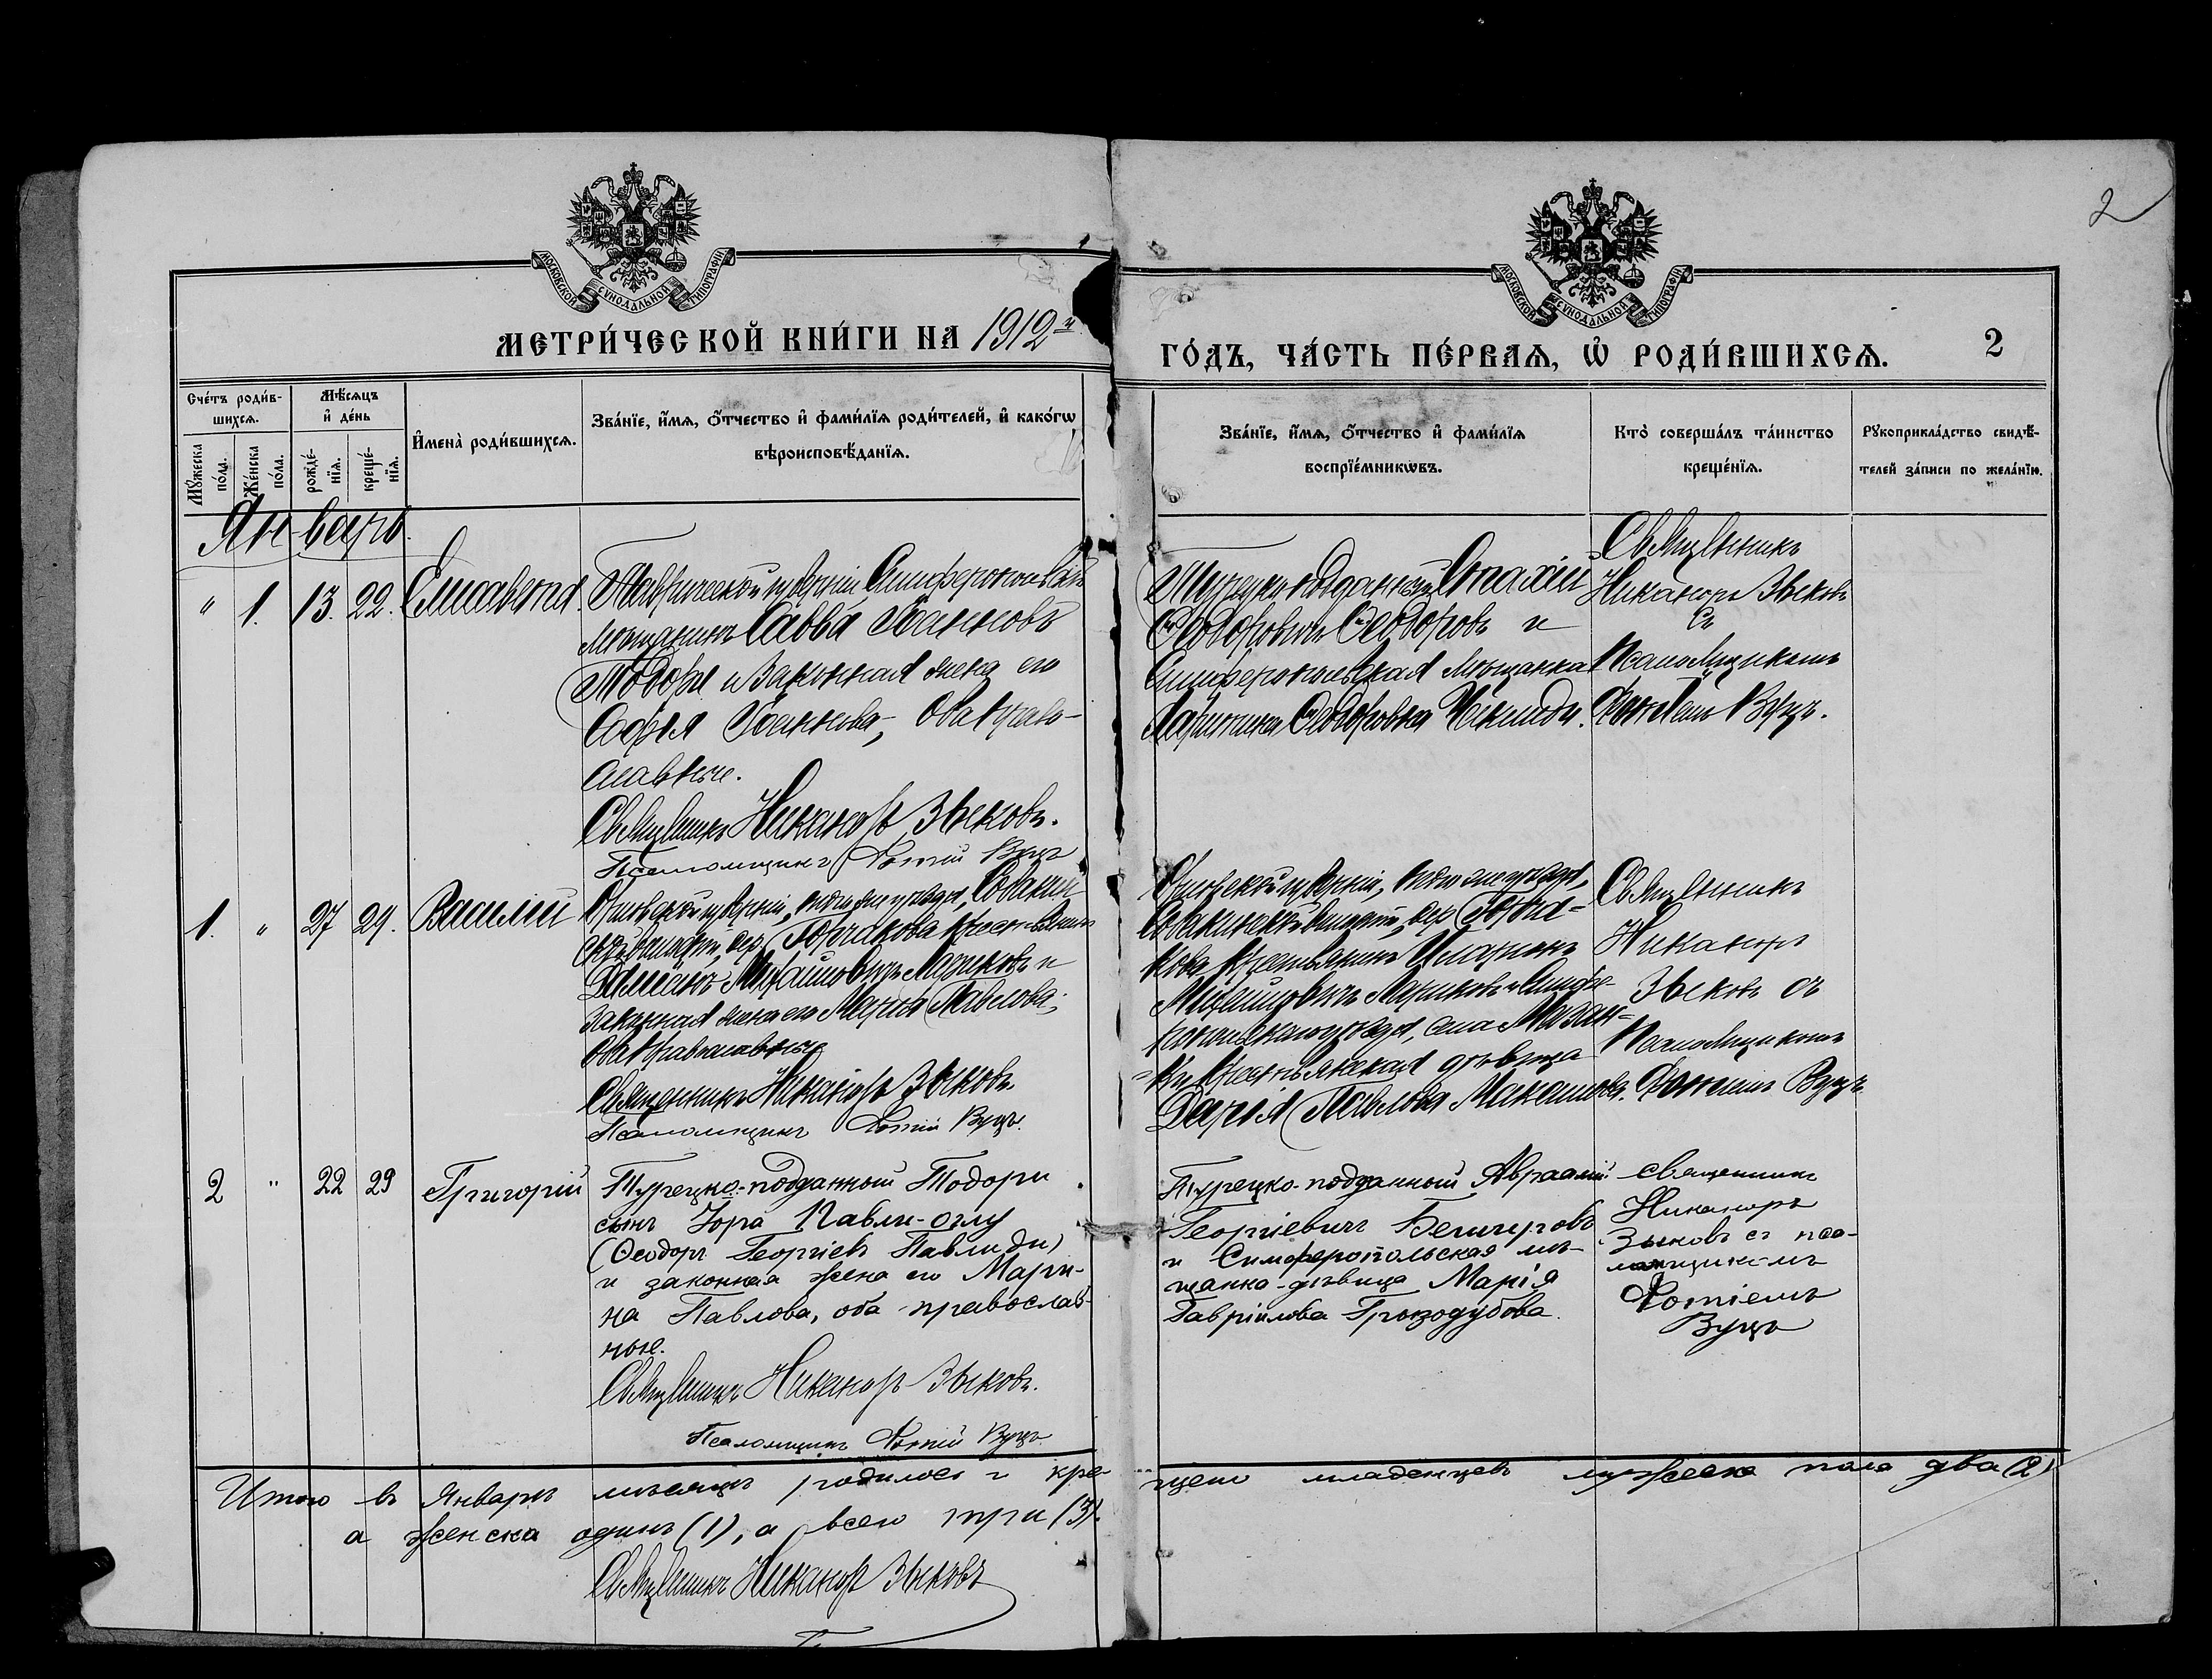 2
МОСКОВСКОЙ СѴНОДАЛЬНОЙ ТИПОГРАФІИ
МОСКОВСКОЙ СѴНОДАЛЬНОЙ ТИПОГРАФІИ
МЕТРИ́ЧЕСКОЙ КНИ́ГИ НА 1912й
ГО́ДЪ, ЧА́СТЬ ПЕ́РВАѦ, Ѡ҆ РОДИ́ВШИХСѦ. 2
Сче́тъ роди́в-
шихсѧ.
Мꙋ́жеска по́ла.
Же́нска по́ла.
Мѣ́сѧцъ
и҆ де́нь
рожде́-
нїѧ.
креще́-
нїѧ.
И҆мена̀ роди́вшихсѧ.
Зва́нїе, и҆́мѧ, ѻ҆́тчество и҆ фами́лїѧ роди́телей, и҆ како́гѡ
вѣроисповѣ́данїѧ.
Зва́нїе, и҆́мѧ, ѻ҆́тчество и҆ фами́лїѧ
воспрїе́мникѡвъ.
Кто̀ соверша́лъ та́инство
креще́нїѧ.
Рꙋкоприкла́дство свидѣ́-
телей за́писи по жела́нїю.
Январь.
" 1. 13. 22. Елисавета.
Таврической губерніи, Симферопольскій
мѣщанинъ Савва Іоанновъ
Тодоры и законная жена его
Софія Іоаннова, оба право-
славные.
Священникъ Никаноръ Зыковъ.
Псаломщикъ Фотій Вуцъ
Турецко подданный
Ѳеодоровичъ Ѳеодоровъ и
Симферопольская мѣщанка
Ѳеодоровна
Священникъ
Никаноръ Зыковъ
съ
псаломщикомъ
Фотіемъ Вуцъ.
1. " 27 29. Василій
Орловской губерніи, уѣзда,
волости, дер. Горчакова крестьянинъ
Даміанъ Михайловичъ и
законная жена его Марія Павлова;
оба православные
Священникъ Никаноръ Зыковъ.
Псаломщикъ Фотій Вуцъ.
Орловской губерніи, уѣзда,
волости, дер. Горча-
кова крестьянинъ Иларіонъ
Михайловичъ и Симфе-
ропольскаго уѣзда, села Мазан-
ки крестьянская дѣвица
Дарія Павлова
Священникъ
Никаноръ
Зыковъ съ
псаломщикомъ
Фотіемъ Вуцъ
2 " 22 29 Григорій
Турецко-подданный Тодори
сынъ Іора Павли-оглу
(Ѳеодоръ Георгіевъ Павлиди)
и законная жена его Мари-
на Павлова, оба православ-
ные.
Священникъ Никаноръ Зыковъ.
Псаломщикъ Фотій Вуцъ.
Турецко-подданный Авраамій
Георгіевичъ
и Симферопольская мѣ-
щанка-дѣвица Марія
Гавріилова Грызодубова.
священникъ
Никаноръ
Зыковъ съ пса-
ломщикомъ
Фотіемъ
Вуцъ
Итого въ Январѣ мѣсяцѣ родилось и кре-
щено младенцевъ мужеска пола два (2)
а женска одинъ (1), а всего три (3).
Священникъ Никаноръ Зыковъ